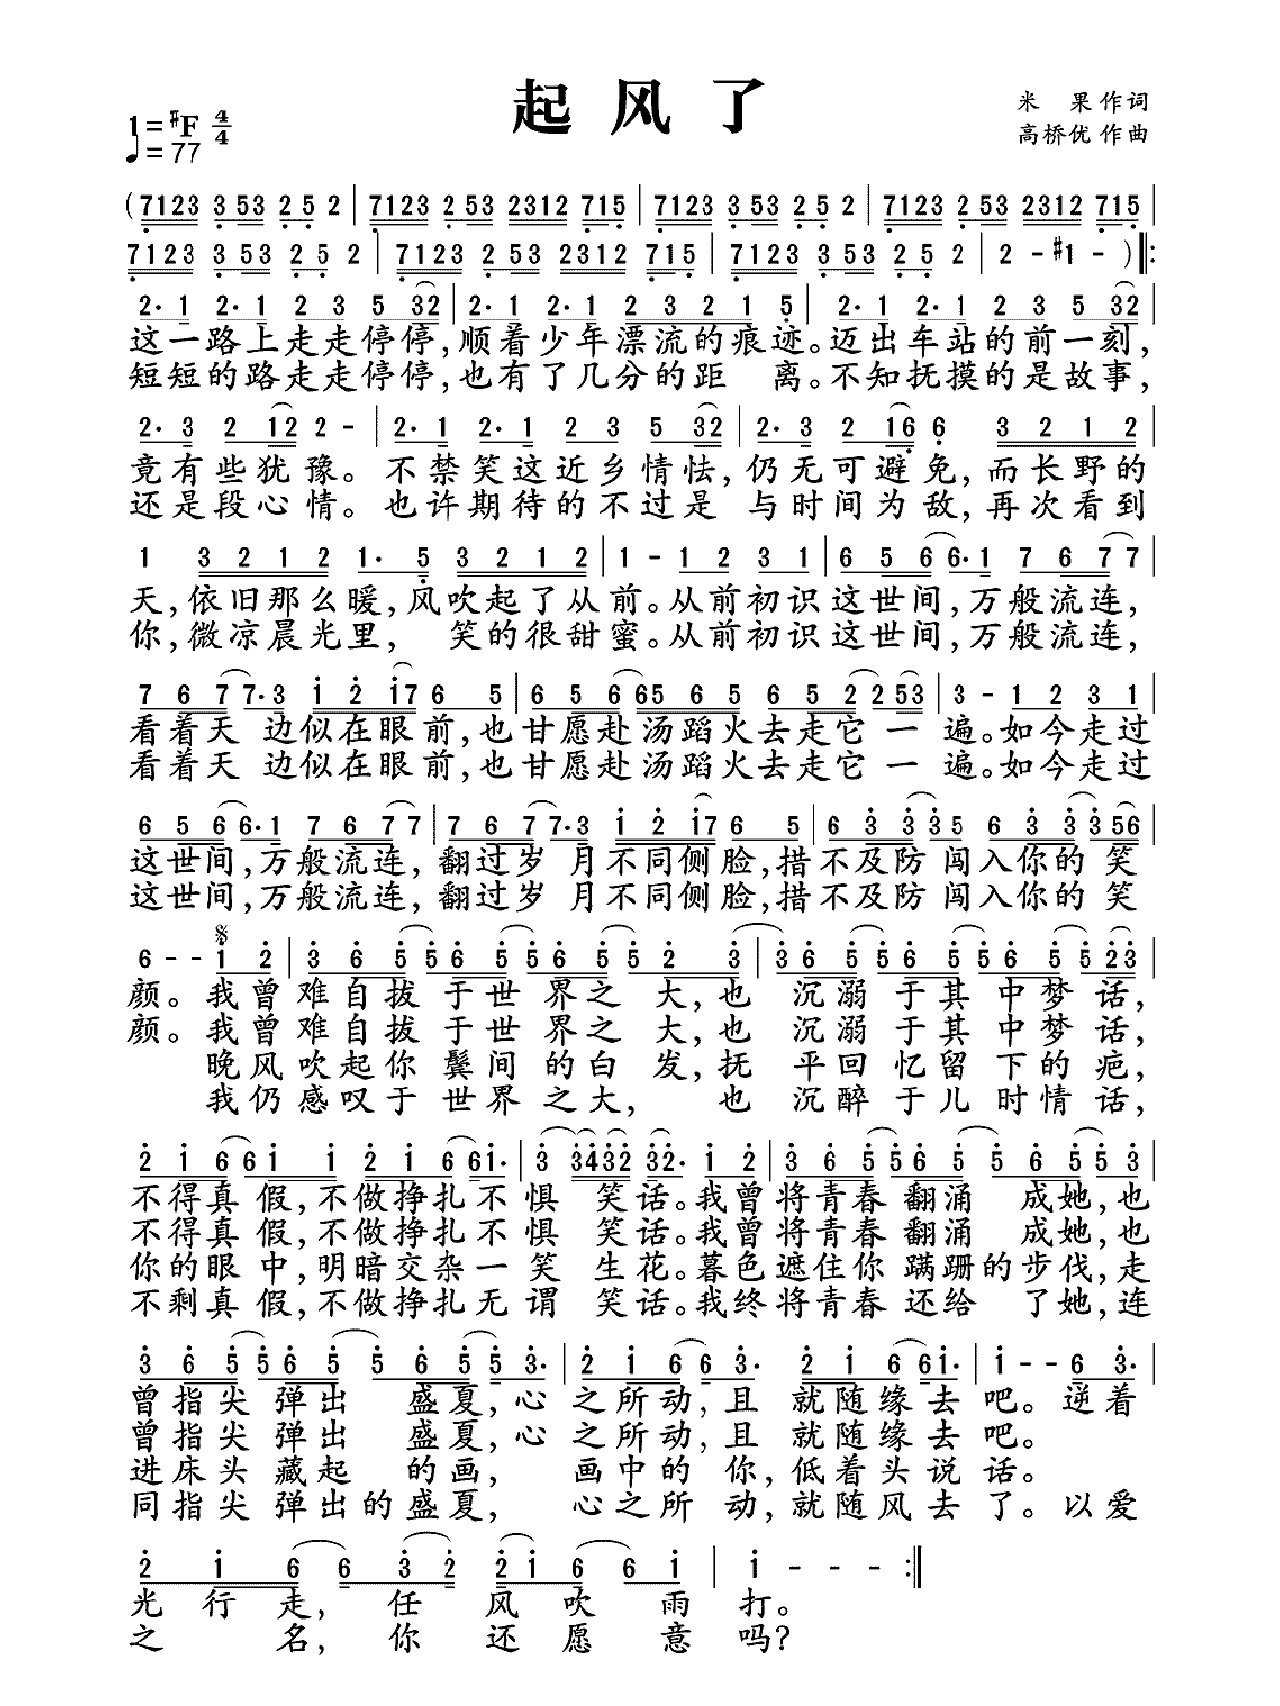 起风了
米 果作词
高桥优作曲
1=#F 4/4
♩=77
(7123 3 53 2 5 2 | 7123 2 53 2312 715 | 7123 3 53 2 5 2 | 7123 2 53 2312 715 |
7123 3 53 2 5 2 | 7123 2 53 2312 715 | 7123 3 53 2 5 2 | 2 - #1 - )‖:
2· 1 2· 1 2 3 5 32 | 2· 1 2· 1 2 3 2 1 5 | 2· 1 2· 1 2 3 5 32 |
这一路上走走停停,顺着少年漂流的痕迹。迈出车站的前一刻,
短短的路走走停停,也有了几分的距 离。不知抚摸的是故事,
2· 3 2 12 2 - | 2· 1 2· 1 2 3 5 32 | 2· 3 2 16 6 3 2 1 2 |
竟有些犹豫。不禁笑这近乡情怯,仍无可避免,而长野的
还是段心情。也许期待的不过是 与时间为敌,再次看到
1 3 2 1 2 1· 5 3 2 1 2 | 1 - 1 2 3 1 | 6 5 6 6· 1 7 6 7 7 |
天,依旧那么暖,风吹起了从前。从前初识这世间,万般流连,
你,微凉晨光里, 笑的很甜蜜。从前初识这世间,万般流连,
7 6 7 7· 3 1 2 17 6 5 | 6 5 6 65 6 5 6 5 2 2 53 | 3 - 1 2 3 1
看着天 边似在眼前,也甘愿赴汤蹈火去走它一 遍。如今走过
看着天 边似在眼前,也甘愿赴汤蹈火去走它一 遍。如今走过
6 5 6 6· 1 7 6 7 7 | 7 6 7 7· 3 1 2 17 6 5 | 6 3 3 3 5 6 3 3 3 56 |
这世间,万般流连,翻过岁 月不同侧脸,措不及防 闯入你的 笑
这世间,万般流连,翻过岁 月不同侧脸,措不及防 闯入你的 笑
6 - - 1 2 | 3 6 5 5 6 5 5 6 5 5 2 3 | 3 6 5 5 6 5 5 6 5 5 23 |
颜。我曾难自拔 于世 界之 大,也 沉溺 于其 中梦话,
颜。我曾难自拔 于世 界之 大,也 沉溺 于其 中梦话,
晚风吹起你 鬓间 的白 发,抚 平回 忆留 下的 疤,
我仍感叹于 世界 之大, 也 沉醉 于儿 时情 话,
2 1 6 6 1 1 2 1 6 6 1· | 3 3432 32· 1 2 | 3 6 5 5 6 5 5 6 5 5 3 |
不得真 假,不做挣扎不 惧 笑话。我曾将青春翻涌 成她,也
不得真 假,不做挣扎不 惧 笑话。我曾将青春翻涌 成她,也
你的眼 中,明暗交杂一 笑 生花。暮色遮住你 蹒跚的步伐,走
不剩真 假,不做挣扎无 谓 笑话。我终将青春还给 了她,连
3 6 5 5 6 5 5 6 5 5 3· | 2 1 6 6 3· 2 1 6 6 1· | 1 - - 6 3· |
曾指尖 弹出 盛夏,心 之所动,且 就随缘去 吧。逆着
曾指尖 弹出 盛夏,心 之所动,且 就随缘去 吧。
进床头 藏起 的画, 画中的 你,低着头说 话。
同指尖 弹出的盛夏, 心之所 动,就随风去 了。以爱
2 1 6 6 3 2 2 1 6 6 1 | 1 - - - :‖
光行走, 任 风吹雨 打。
之 名, 你 还愿意 吗?